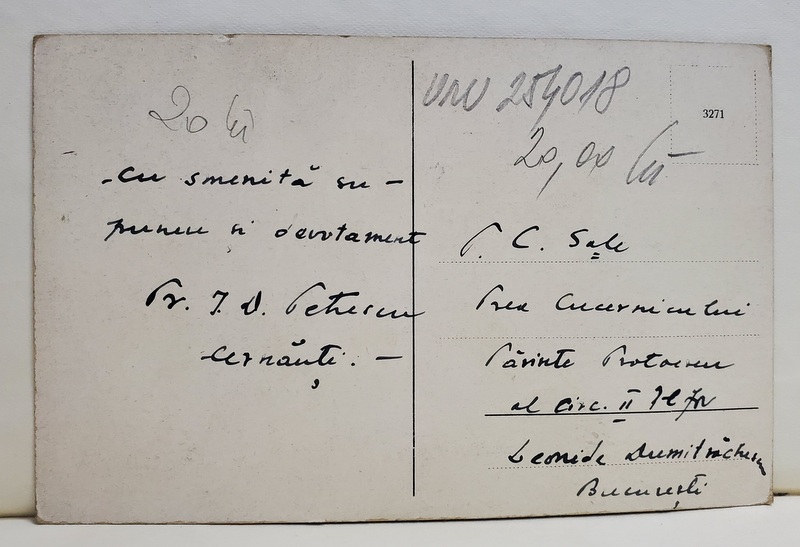 20 lei
-Cu smerită su-
punere si devotament
Pr. I. D. Petrescu
Cernăuți. -
UNV 254018
20,00 lei
3271
P. C. Sale
Prea Cucernicului
Părinte Protoereu
al circ. II Ilfov
Leonida Dumitrăchescu
București